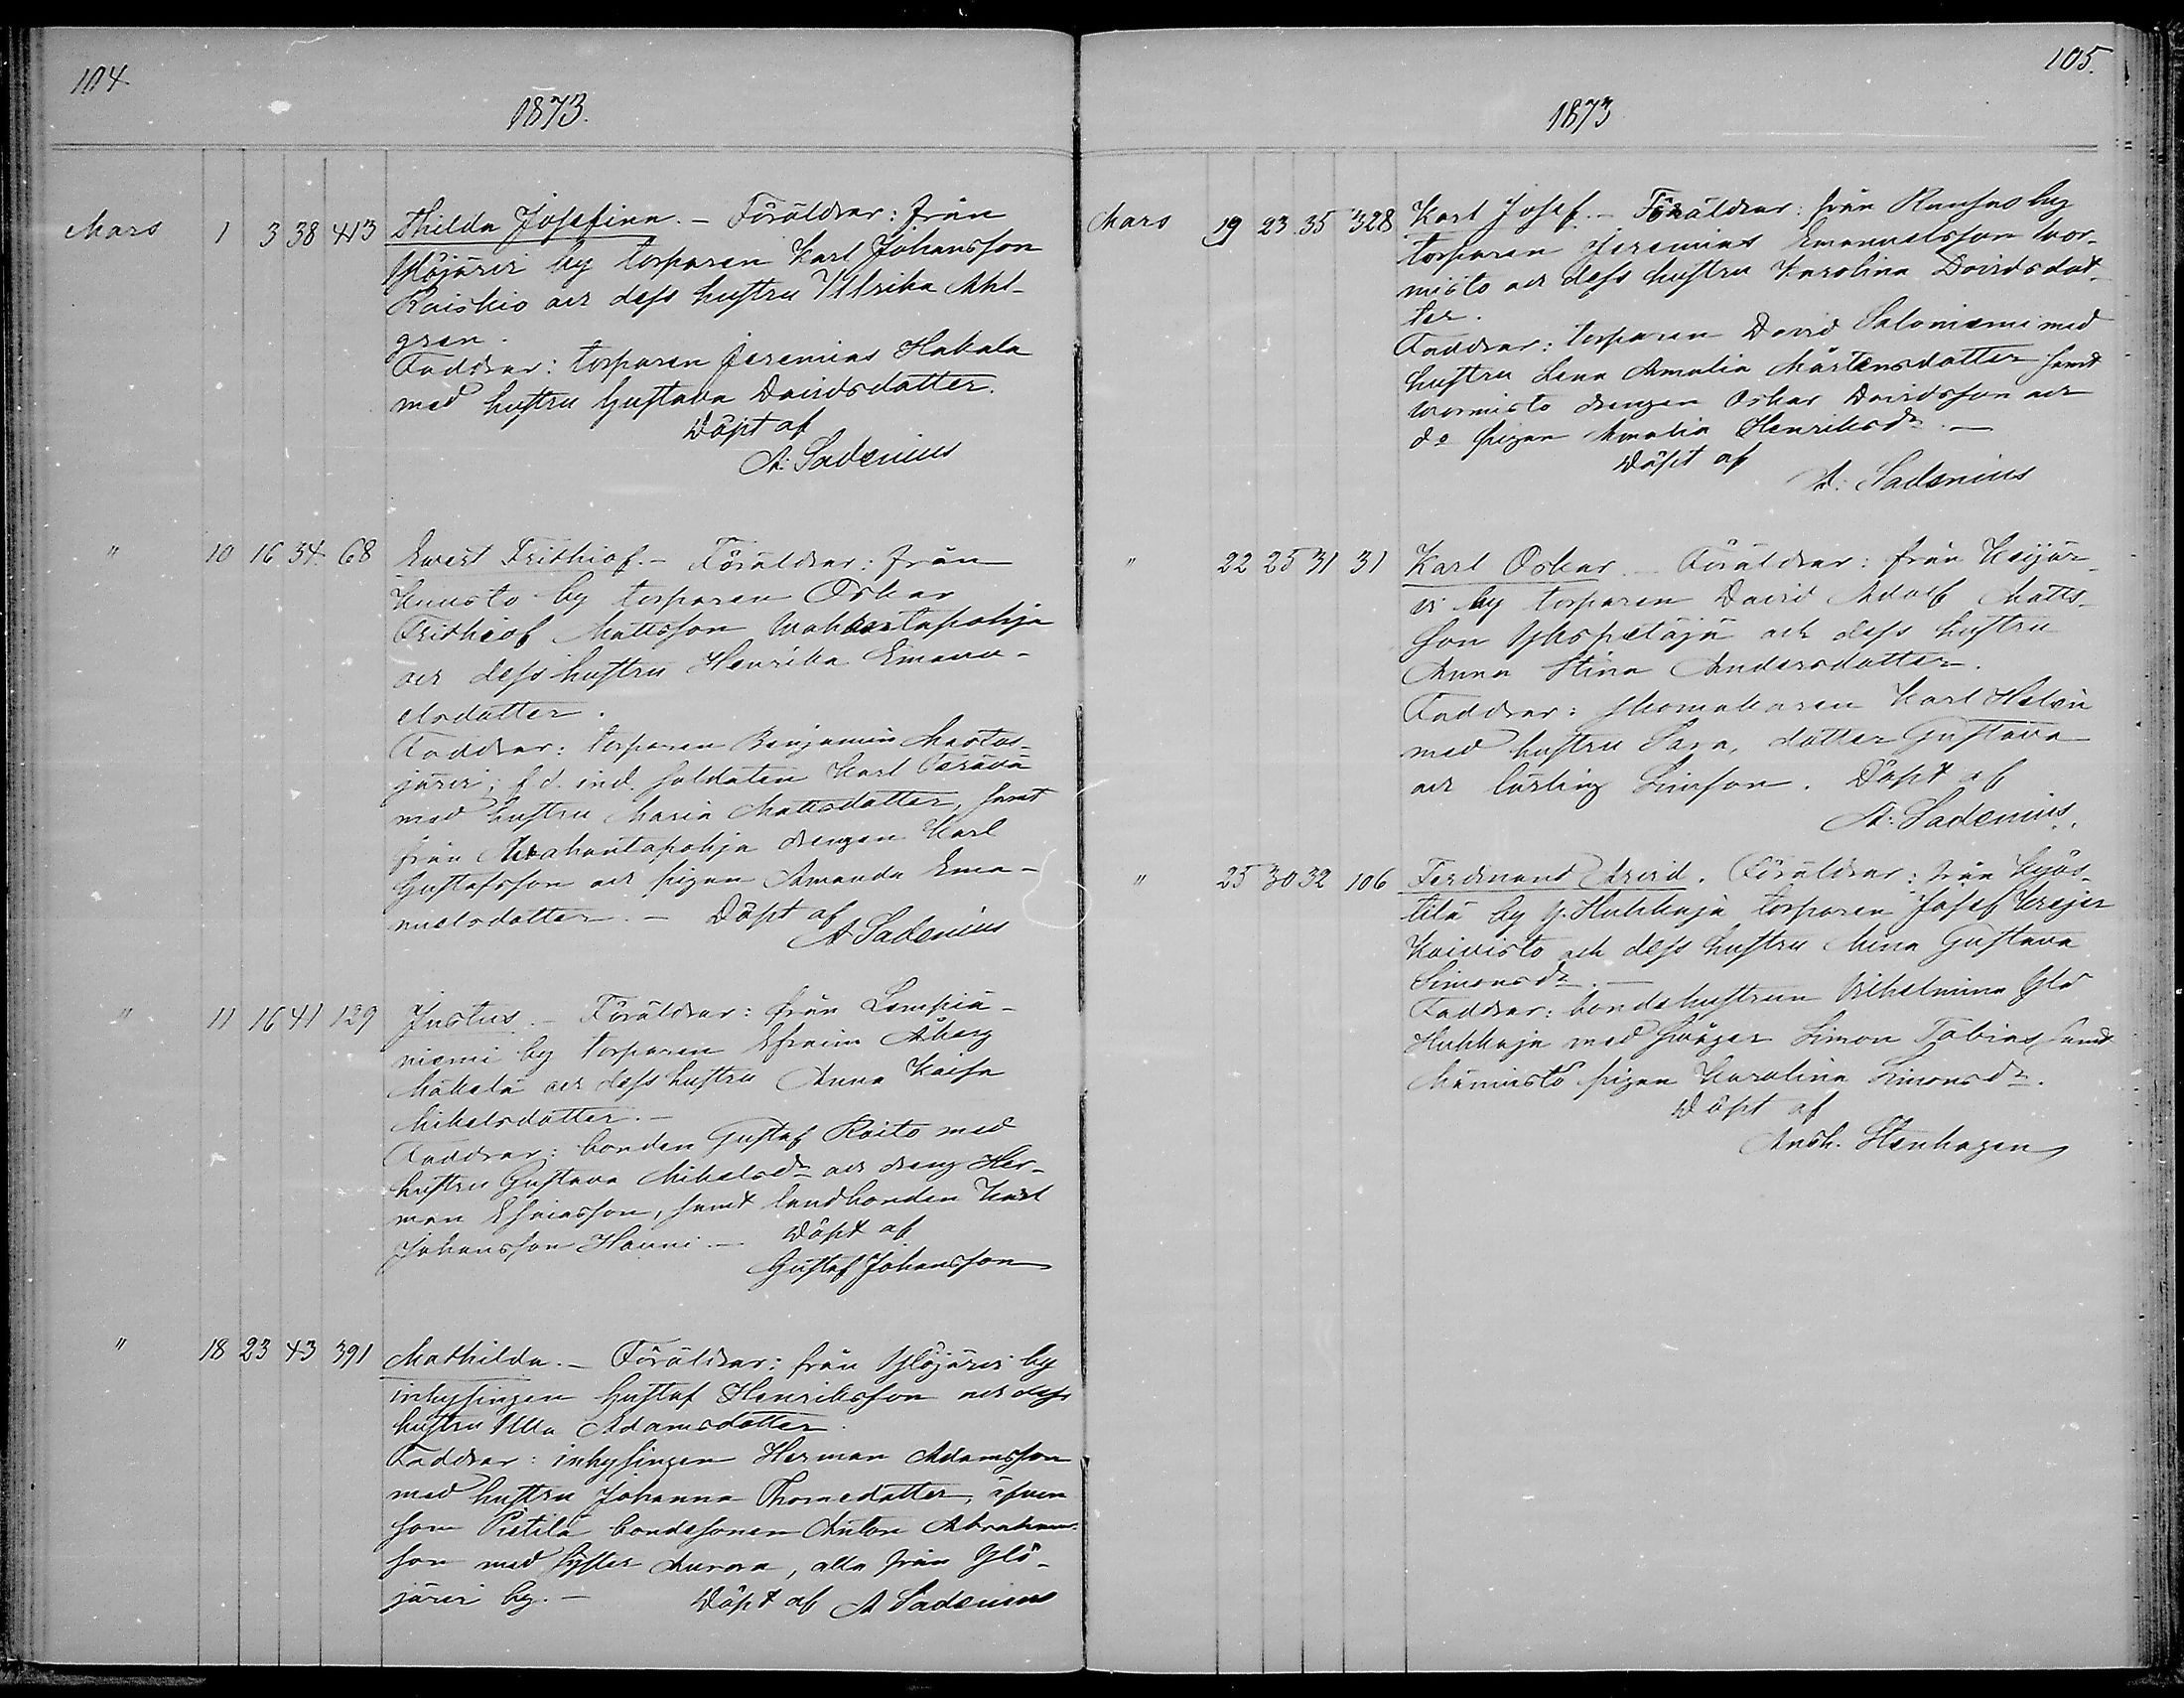 104.
1873.
Mars 1 3 38 413 Thilda Josefina. – Föräldrar: från
Ylöjärvi by torparen Karl Johansson
Raiskio och dess hustru Ullrika Ahl-
gren.
Faddrar: torparen Jeremias Hakala
med hustru Gustava Davidsdotter.
Döpt af
A: Sadenius
" 10 16 34 68 Ewert Frithiof. – Föräldrar: från
by torparen Oskar
Frithiof Mattsson Wahantapohja
och dess hustru Henrika Emanu-
elsdotter.
Faddrar: torparen Benjamin Mastos-
järvi; f.d. ind. soldaten Karl
med hustru Maria Mattsdotter, samt
från Wahantapohja drengen Karl
Gustafsson och pigan Amanda Ema-
nuelsdotter. – Döpt af
A Sadenius
" 11 16 41 129 Justus. – Föräldrar: från Lempiä-
niemi by torparen Efraim Åberg
Mäkelä och dess hustru Anna Kaisa
Mikelsdotter. –
Faddrar: bonden Gustaf Raito med
hustru Gustava Mikelsdr och dreng Her-
man Esaiasson, samt landbonden Karl
Johansson Hanni. – Döpt af
Gustaf Johansson
" 18 23 43 391 Mathilda. – Föräldrar: från Ylöjärvi by
inhysingen Gustaf Henriksson och dess
hustru Ulla Adamsdotter.
Faddrar: inhysingen Herman Adamsson
med hustru Johanna Thomedotter, äfven
som Pietilä bondesonen Anton Abraham-
son med syster Aurora, alla från Ylö-
järvi by. – Döpt af A Sadenius
105.
1873
Mars 19 23 35 328 Karl Josef. – Föräldrar: från by
torparen Jeremias Emanuelsson Wor-
misto och dess hustru Karolina Davidsdot-
ter.
Faddrar: torparen David Saloniemi med
hustru Lena Amalia Mårtensdotter samt
Wormisto drengen Oskar Davidsson och
do pigan Amalia Henriksdr. –
Döpt af
A: Sadenius
" 22 25 31 31 Karl Oskar. – Föräldrar: från Keijär-
vi by torparen David Adolf Matts-
son Yhspetäjä och dess hustru
Anna Stina Andersdotter.
Faddrar: skomakaren Karl Helen
med hustru Sara, dotter Gustava
och lärling Simson. Döpt af
A: Sadenius.
" 25 30 32 106 Ferdinand Arvid. Föräldrar: från Kyös-
tilä by Y. Huhkaja torparen Josef Krejer
Koivisto och dess hustru Mina Gustava
Simonsdr. –
Faddrar: bondehustrun Vilhelmina Ylo
Huhkaja med svåger Simon Tobias, samt
Männistö pigan Karolina Simonsdr.
Döpt af
Ansh. Stenhagen